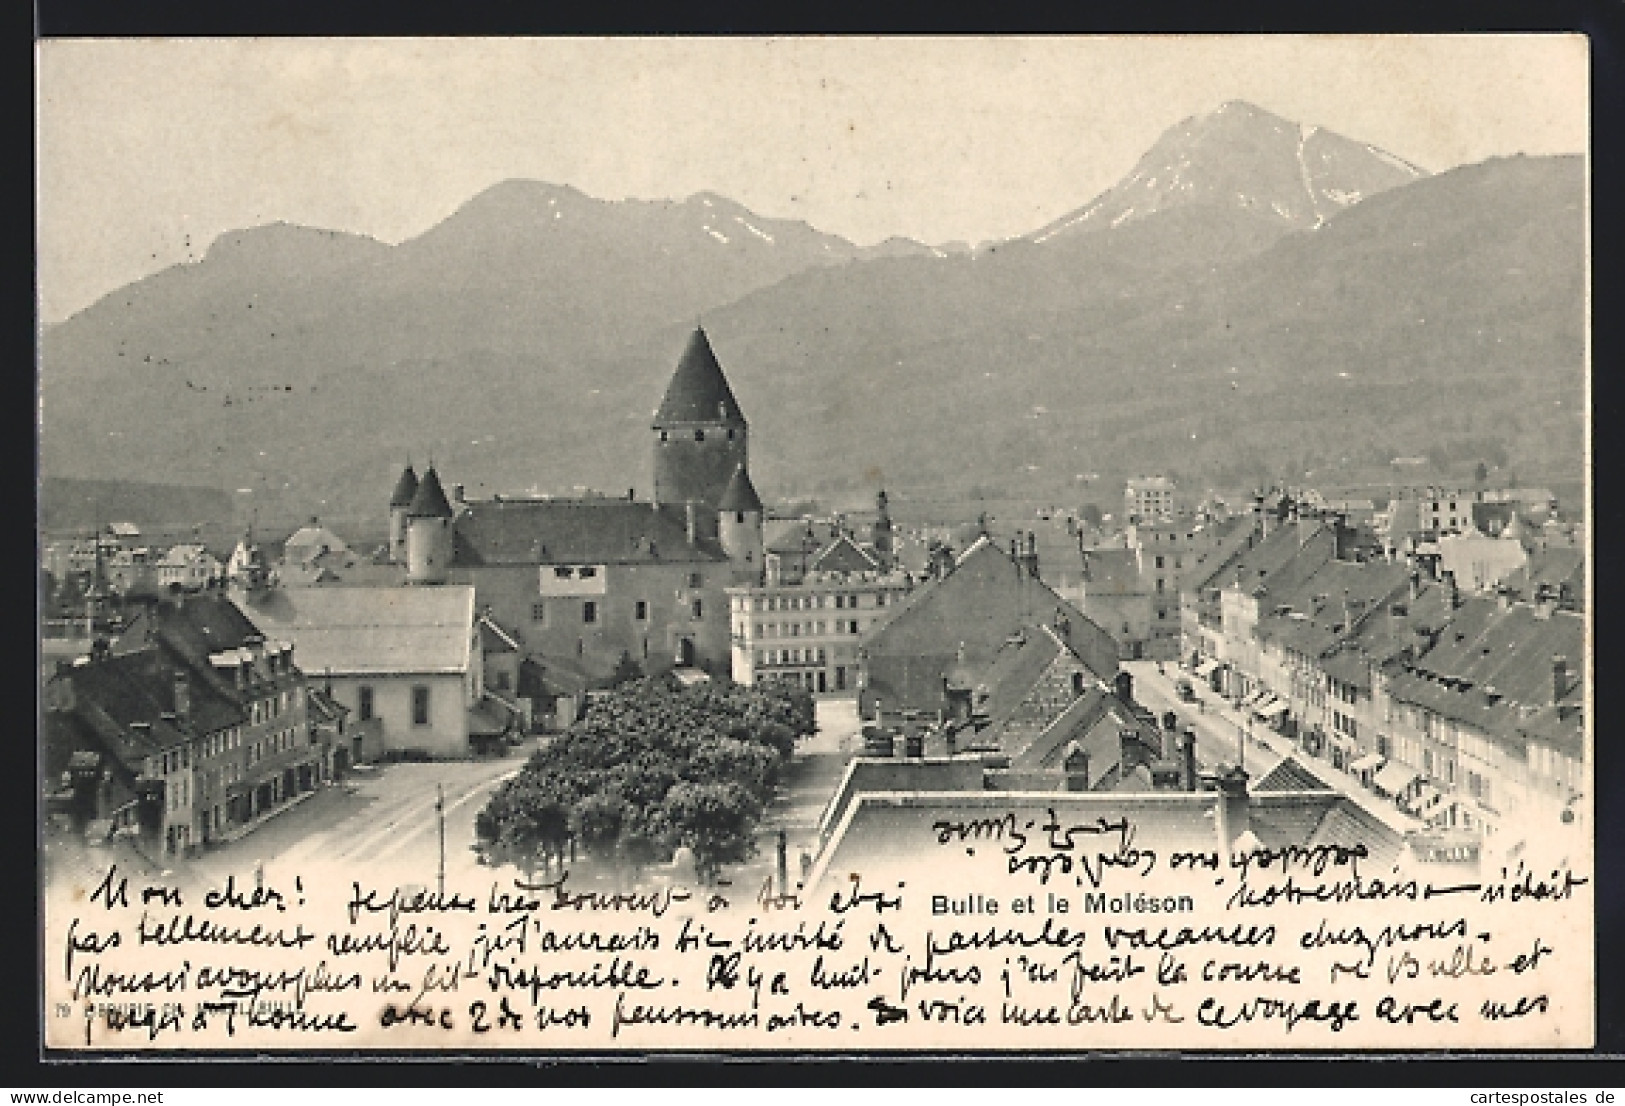 Mon cher! Je pense très souvent à toi et si
Bulle et le Moléson
notre maison n'était
pas tellement remplie je t'aurais bien invité de passer les vacances chez nous.
Nous n'avons plus un lit disponible. Il y a huit jours j'ai fait la course de Bulle et
à avec 2 de nos pensionnaires. En voici une carte de ce voyage avec mes
79
delcampe.net
cartespostales de